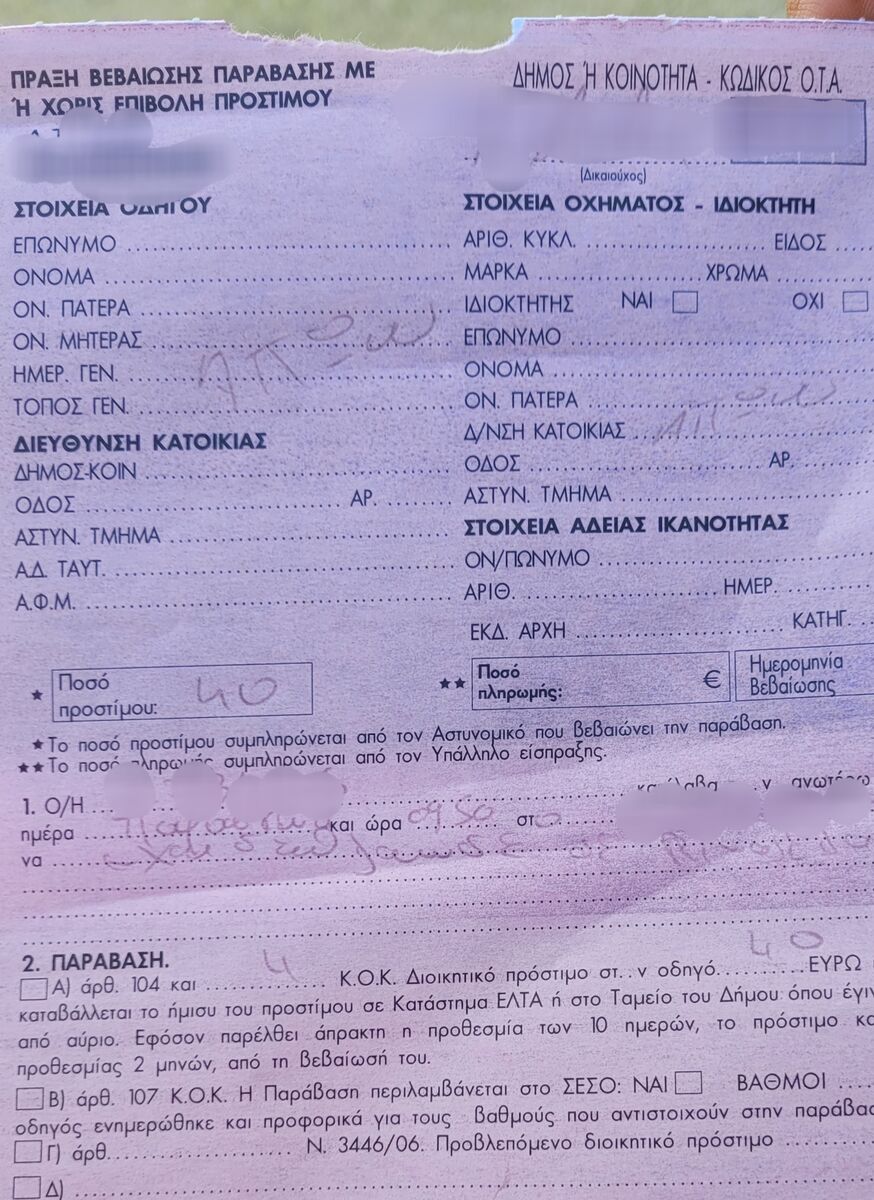 ΠΡΑΞΗ ΒΕΒΑΙΩΣΗΣ ΠΑΡΑΒΑΣΗΣ ΜΕ
Ή ΧΩΡΙΣ ΕΠΙΒΟΛΗ ΠΡΟΣΤΙΜΟΥ
ΔΗΜΟΣ Ή ΚΟΙΝΟΤΗΤΑ - ΚΩΔΙΚΟΣ Ο.Τ.Α.
(Δικαιούχος)
ΣΤΟΙΧΕΙΑ ΟΔΗΓΟΥ
ΕΠΩΝΥΜΟ
ΟΝΟΜΑ
ΟΝ. ΠΑΤΕΡΑ
ΟΝ. ΜΗΤΕΡΑΣ
ΗΜΕΡ. ΓΕΝ.
ΤΟΠΟΣ ΓΕΝ.
ΔΙΕΥΘΥΝΣΗ ΚΑΤΟΙΚΙΑΣ
ΔΗΜΟΣ-ΚΟΙΝ
ΟΔΟΣ ΑΡ.
ΑΣΤΥΝ. ΤΜΗΜΑ
ΑΔ. ΤΑΥΤ.
Α.Φ.Μ.
ΣΤΟΙΧΕΙΑ ΟΧΗΜΑΤΟΣ - ΙΔΙΟΚΤΗΤΗ
ΑΡΙΘ. ΚΥΚΛ. ΕΙΔΟΣ
ΜΑΡΚΑ ΧΡΩΜΑ
ΙΔΙΟΚΤΗΤΗΣ ΝΑΙ ΟΧΙ
ΕΠΩΝΥΜΟ
ΟΝΟΜΑ
ΟΝ. ΠΑΤΕΡΑ
Δ/ΝΣΗ ΚΑΤΟΙΚΙΑΣ
ΟΔΟΣ ΑΡ.
ΑΣΤΥΝ. ΤΜΗΜΑ
ΣΤΟΙΧΕΙΑ ΑΔΕΙΑΣ ΙΚΑΝΟΤΗΤΑΣ
ΟΝ/ΠΩΝΥΜΟ
ΑΡΙΘ. ΗΜΕΡ.
ΕΚΔ. ΑΡΧΗ ΚΑΤΗΓ.
★ Ποσό
προστίμου: 40
★★ Ποσό
πληρωμής: €
Ημερομηνία
Βεβαίωσης
★Το ποσό προστίμου συμπληρώνεται από τον Αστυνομικό που βεβαιώνει την παράβαση.
★★Το ποσό πληρωμής συμπληρώνεται από τον Υπάλληλο είσπραξης.
1. Ο/Η κατέλαβα ν ανωτέρω
ημέρα και ώρα 0950 στ
να
2. ΠΑΡΑΒΑΣΗ.
Α) άρθ. 104 και 4 Κ.Ο.Κ. Διοικητικό πρόστιμο στ..ν οδηγό 40 ΕΥΡΩ
καταβάλλεται το ήμισυ του προστίμου σε Κατάστημα ΕΛΤΑ ή στο Ταμείο του Δήμου όπου έγιν
από αύριο. Εφόσον παρέλθει άπρακτη η προθεσμία των 10 ημερών, το πρόστιμο κα
προθεσμίας 2 μηνών, από τη βεβαίωσή του.
Β) άρθ. 107 Κ.Ο.Κ. Η Παράβαση περιλαμβάνεται στο ΣΕΣΟ: ΝΑΙ ΒΑΘΜΟΙ
οδηγός ενημερώθηκε και προφορικά για τους βαθμούς που αντιστοιχούν στην παράβασ
Γ) άρθ. Ν. 3446/06. Προβλεπόμενο διοικητικό πρόστιμο
Δ)